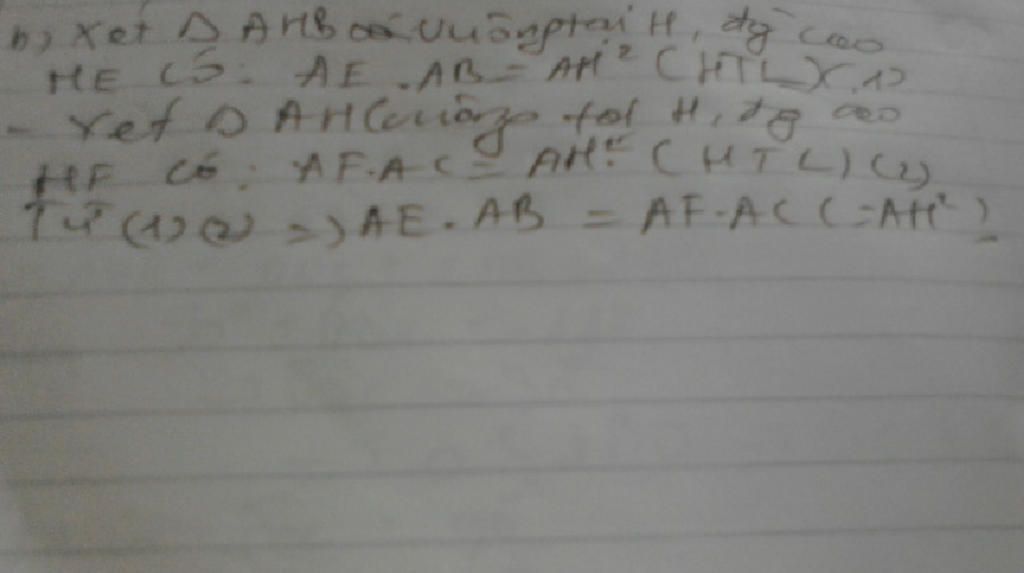 b) Xét Δ AHB có vuông tại H, đg cao
HE có: AE . AB = AH² (HTL) (1)
- Xét Δ AHC vuông tại H, đg cao
HF có: AF.AC = AH² (HTL) (2)
Từ (1) (2) => AE . AB = AF.AC (=AH²)